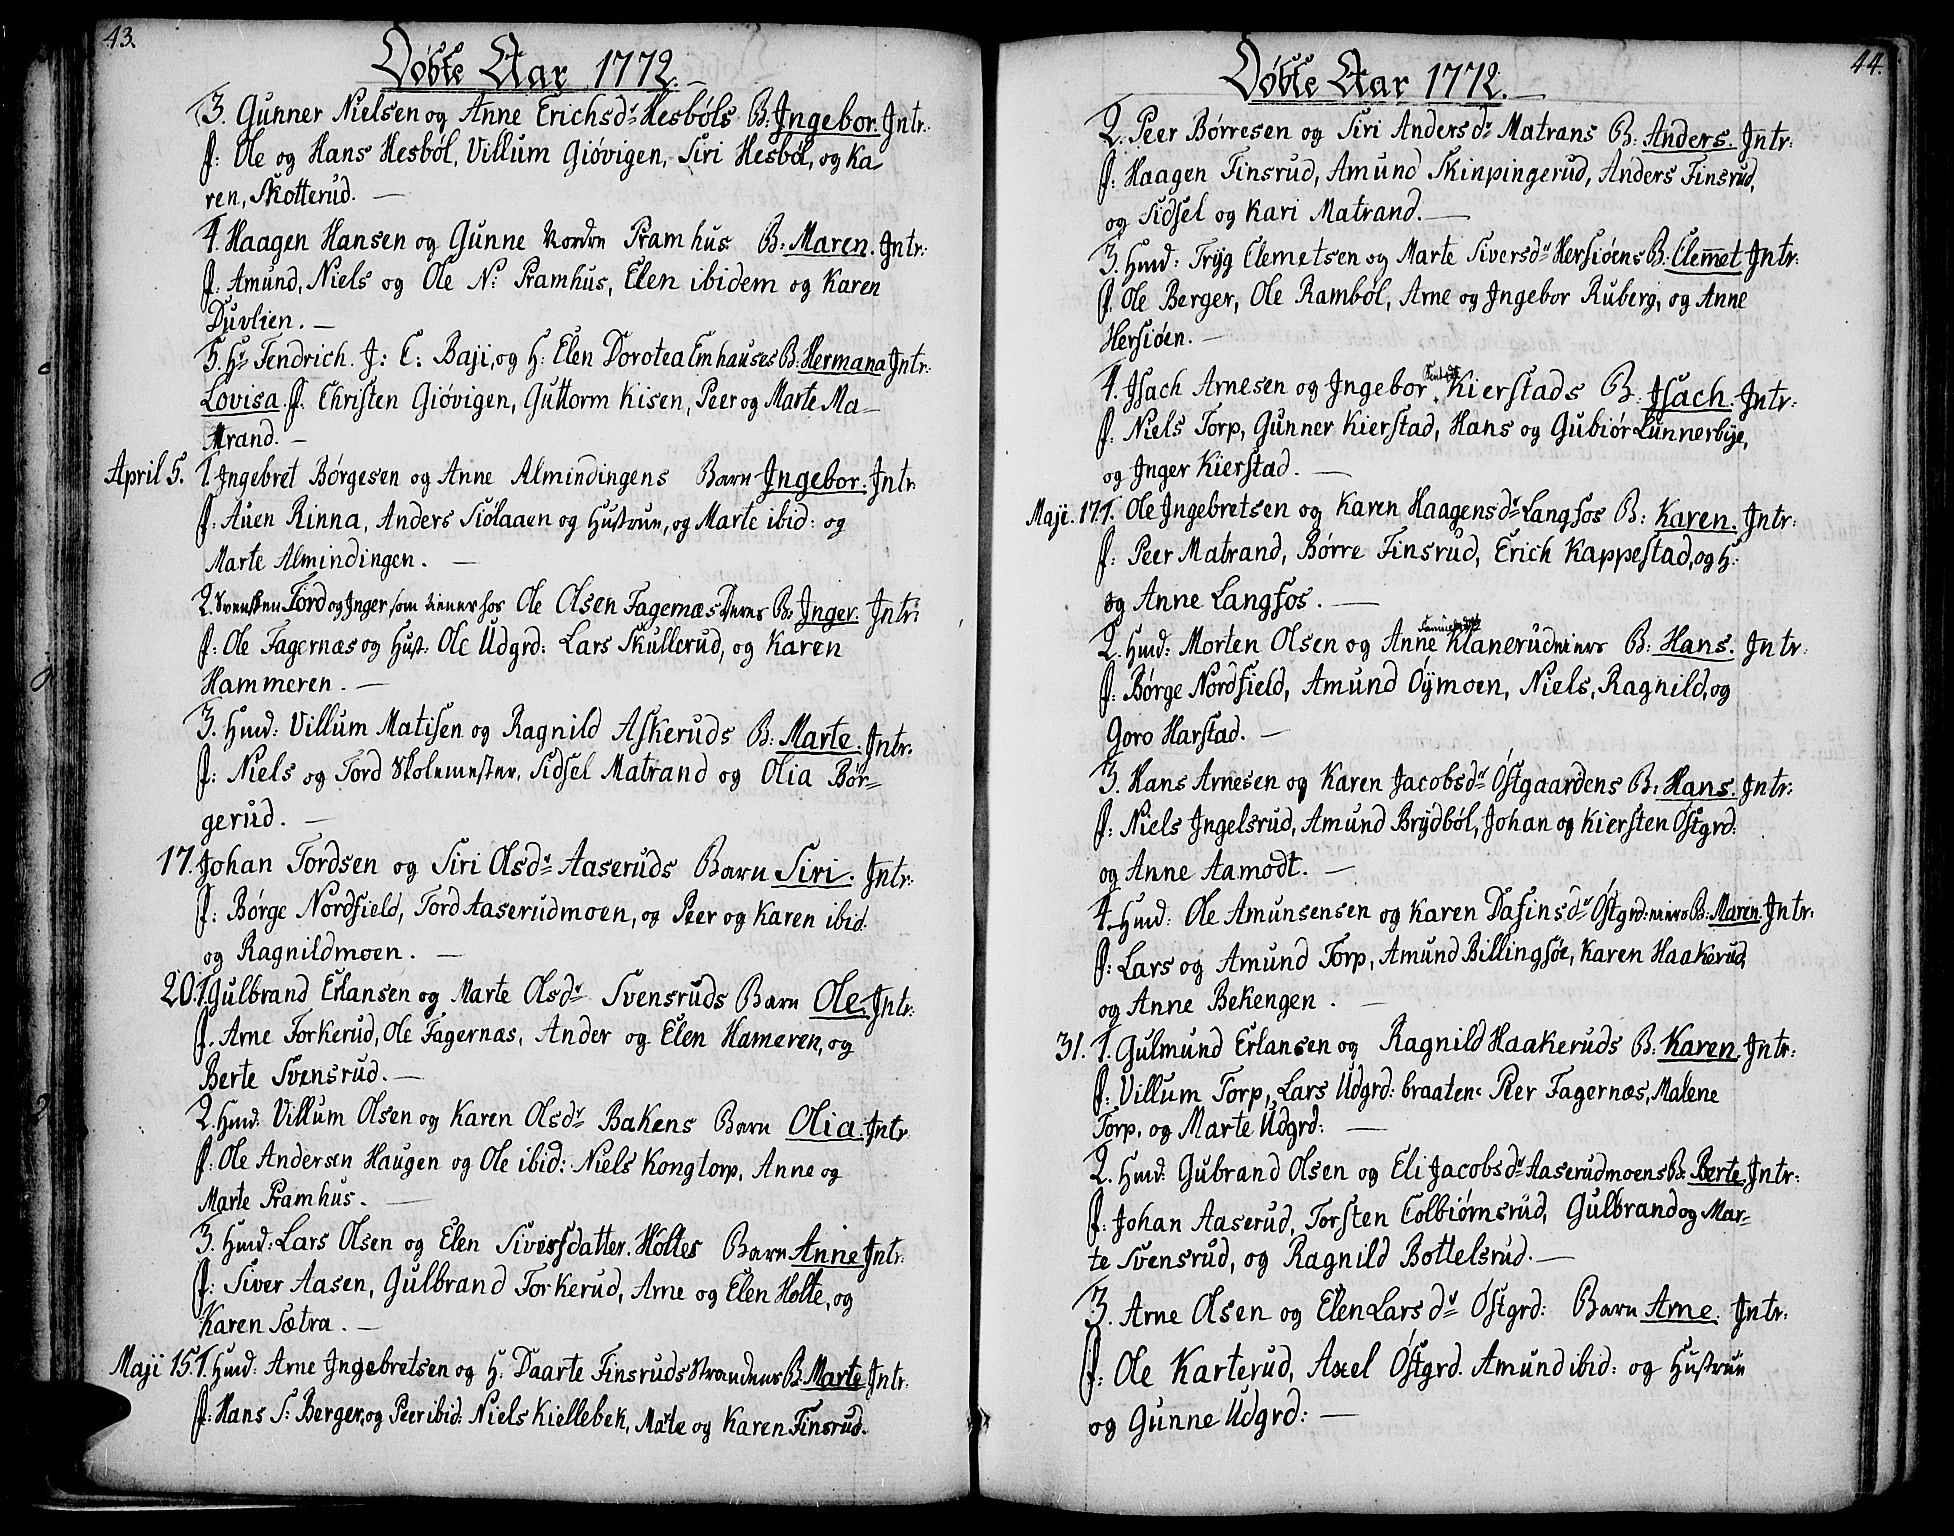 43.
Døbte Aar 1772.
3. Gunner Nielsen og Anne Erichsdr Hesbøls B: Ingebor. Intr.
F: Ole og Hans Hesbøl, Villum Giøvigen, Siri Hesbøl, og Ka
ren, Skotterud.
4. Haagen Hansen og Gunne Nordre Pramhus B: Maren. Intr:
F: Amund, Niels og Ole N: Pramhus, Elen ibidem og Karen
Duvlien.
5. Hr Fendrich J: C: Baji, og H: Elen Dorotea Emhauses B: Hermana Intr:
Lovisa. F: Christen Giøvigen, Guttorm Kisen, Peer og Marte Ma-
trand.
April 5. 1. Ingebret Børgesen og Anne Almindingens Barn Ingebor. Intr.
F: Auen Rinna, Anders Siølaaen og Hustrue, og Marte ibid: og
Marte Almindingen.
2. Svensken Tord og Inger, som tiener hos Ole Olsen Fagernæs Deres B: Inger. Intr:
F: Ole Fagernæs og Hust: Ole Udgrd: Lars Skullerud, og Karen
Hammeren.
3. Hmd: Villum Matisen og Ragnild Askeruds B: Marte. Intr:
F: Niels og Tord Skolemester, Sidsel Matrand og Olia Bør-
gerud.
17. Johan Tordsen og Siri Olsdr Aaseruds Barn Siri. Intr:
F: Børge Nordfield, Tord Aaserudmoen, og Peer og Karen ibid.
og Ragnildmoen.
20. 1. Gulbrand Erlansen og Marte Olsdr Svensruds Barn Ole. Intr:
F. Arne Torkerud, Ole Fagernæs, Ander og Elen Hameren, og
Berte Svensrud.
2. Hmd: Villum Olsen og Karen Olsdr Bakens Barn Olia. Intr
F: Ole Andersen Haugen og Ole ibid: Niels Kongtorp, Anne og
Marte Pramhus.
3. Hmd: Lars Olsen og Elen Siversdatter. Holtes Barn Anne Intr:
F: Siver Aasen, Gulbrand Torkerud, Arne og Elen Holte, og
Karen Sætra.
Maji 15. 1. Hmd: Arne Ingebretsen og H: Daarte Finsruds Strandens B: Marte Intr:
F: Hans S: Berger, og Peer ibid: Niels Kiellebek, Mate og Karen Finsrud.
44.
Døbte Aar 1772.
2. Peer Børresen og Siri Andersdr Matrans B: Anders. Intr:
F: Haagen Finsrud, Amund Skinpingerud, Anders Finsrud,
og Sidsel og Kari Matrand.
3. Hmd: Tryg Clemetsen og Marte Siversdr Hersiøens B: Clemet Intr:
F. Ole Berger, Ole Rambøl, Arne og Ingebor Ruberg, og Anne
Hersiøen.
4. Isach Arnesen og Ingebor Kierstads B: Isach. Intr:
F: Niels Torp, Gunner Kierstad, Hans og Gubiør Lunnerbye,
og Inger Kierstad.
Maji. 17 1. Ole Ingebretsen og Karen Haagensdr Langfos B: Karen. Intr:
F: Peer Matrand, Børre Finsrud, Erich Kappestad, og H:
og Anne Langfos.
2. Hmd: Morten Olsen og Anne Klaneru B: Hans. Intr:
F: Børge Nordfield, Amund Øymoen, Niels, Ragnild, og
Goro Harstad.
3. Hans Arnesen og Karen Jacobsdr Østgaardens B: Hans. Intr:
F: Niels Ingelsrud, Amund Brydbøl, Johan og Kiersten Østgrd:
og Anne Aamodt.
4. Hmd: Ole Amunsensen og Karen Dafinsdr Østgrd: B: Maren. Intr:
F: Lars og Amund Torp, Amund Billingsøe, Karen Haakerud,
og Anne Bekengen.
31. 1. Gulmund Erlansen og Ragnild Haakeruds B: Karen. Intr:
F: Villum Torp, Lars Udgrd: braaten: Peer Fagernæs, Malene
Torp, og Marte Udgrd:
2. Hmd: Gubrand Olsen og Eli Jacobsdr Aaserudmoens B: Berte. Intr:
F: Johan Aaserud, Torsten Colbiørnsrud, Gulbrand og Mar-
te Svensrud, og Ragnild Bottelsrud.
3. Arne Olsen og Elen Larsdr Østgrd: Barn Arne. Intr:
F: Ole Karterud, Axel Østgrd. Amund ibid: og Hustrue
og Gunne Udgrd: